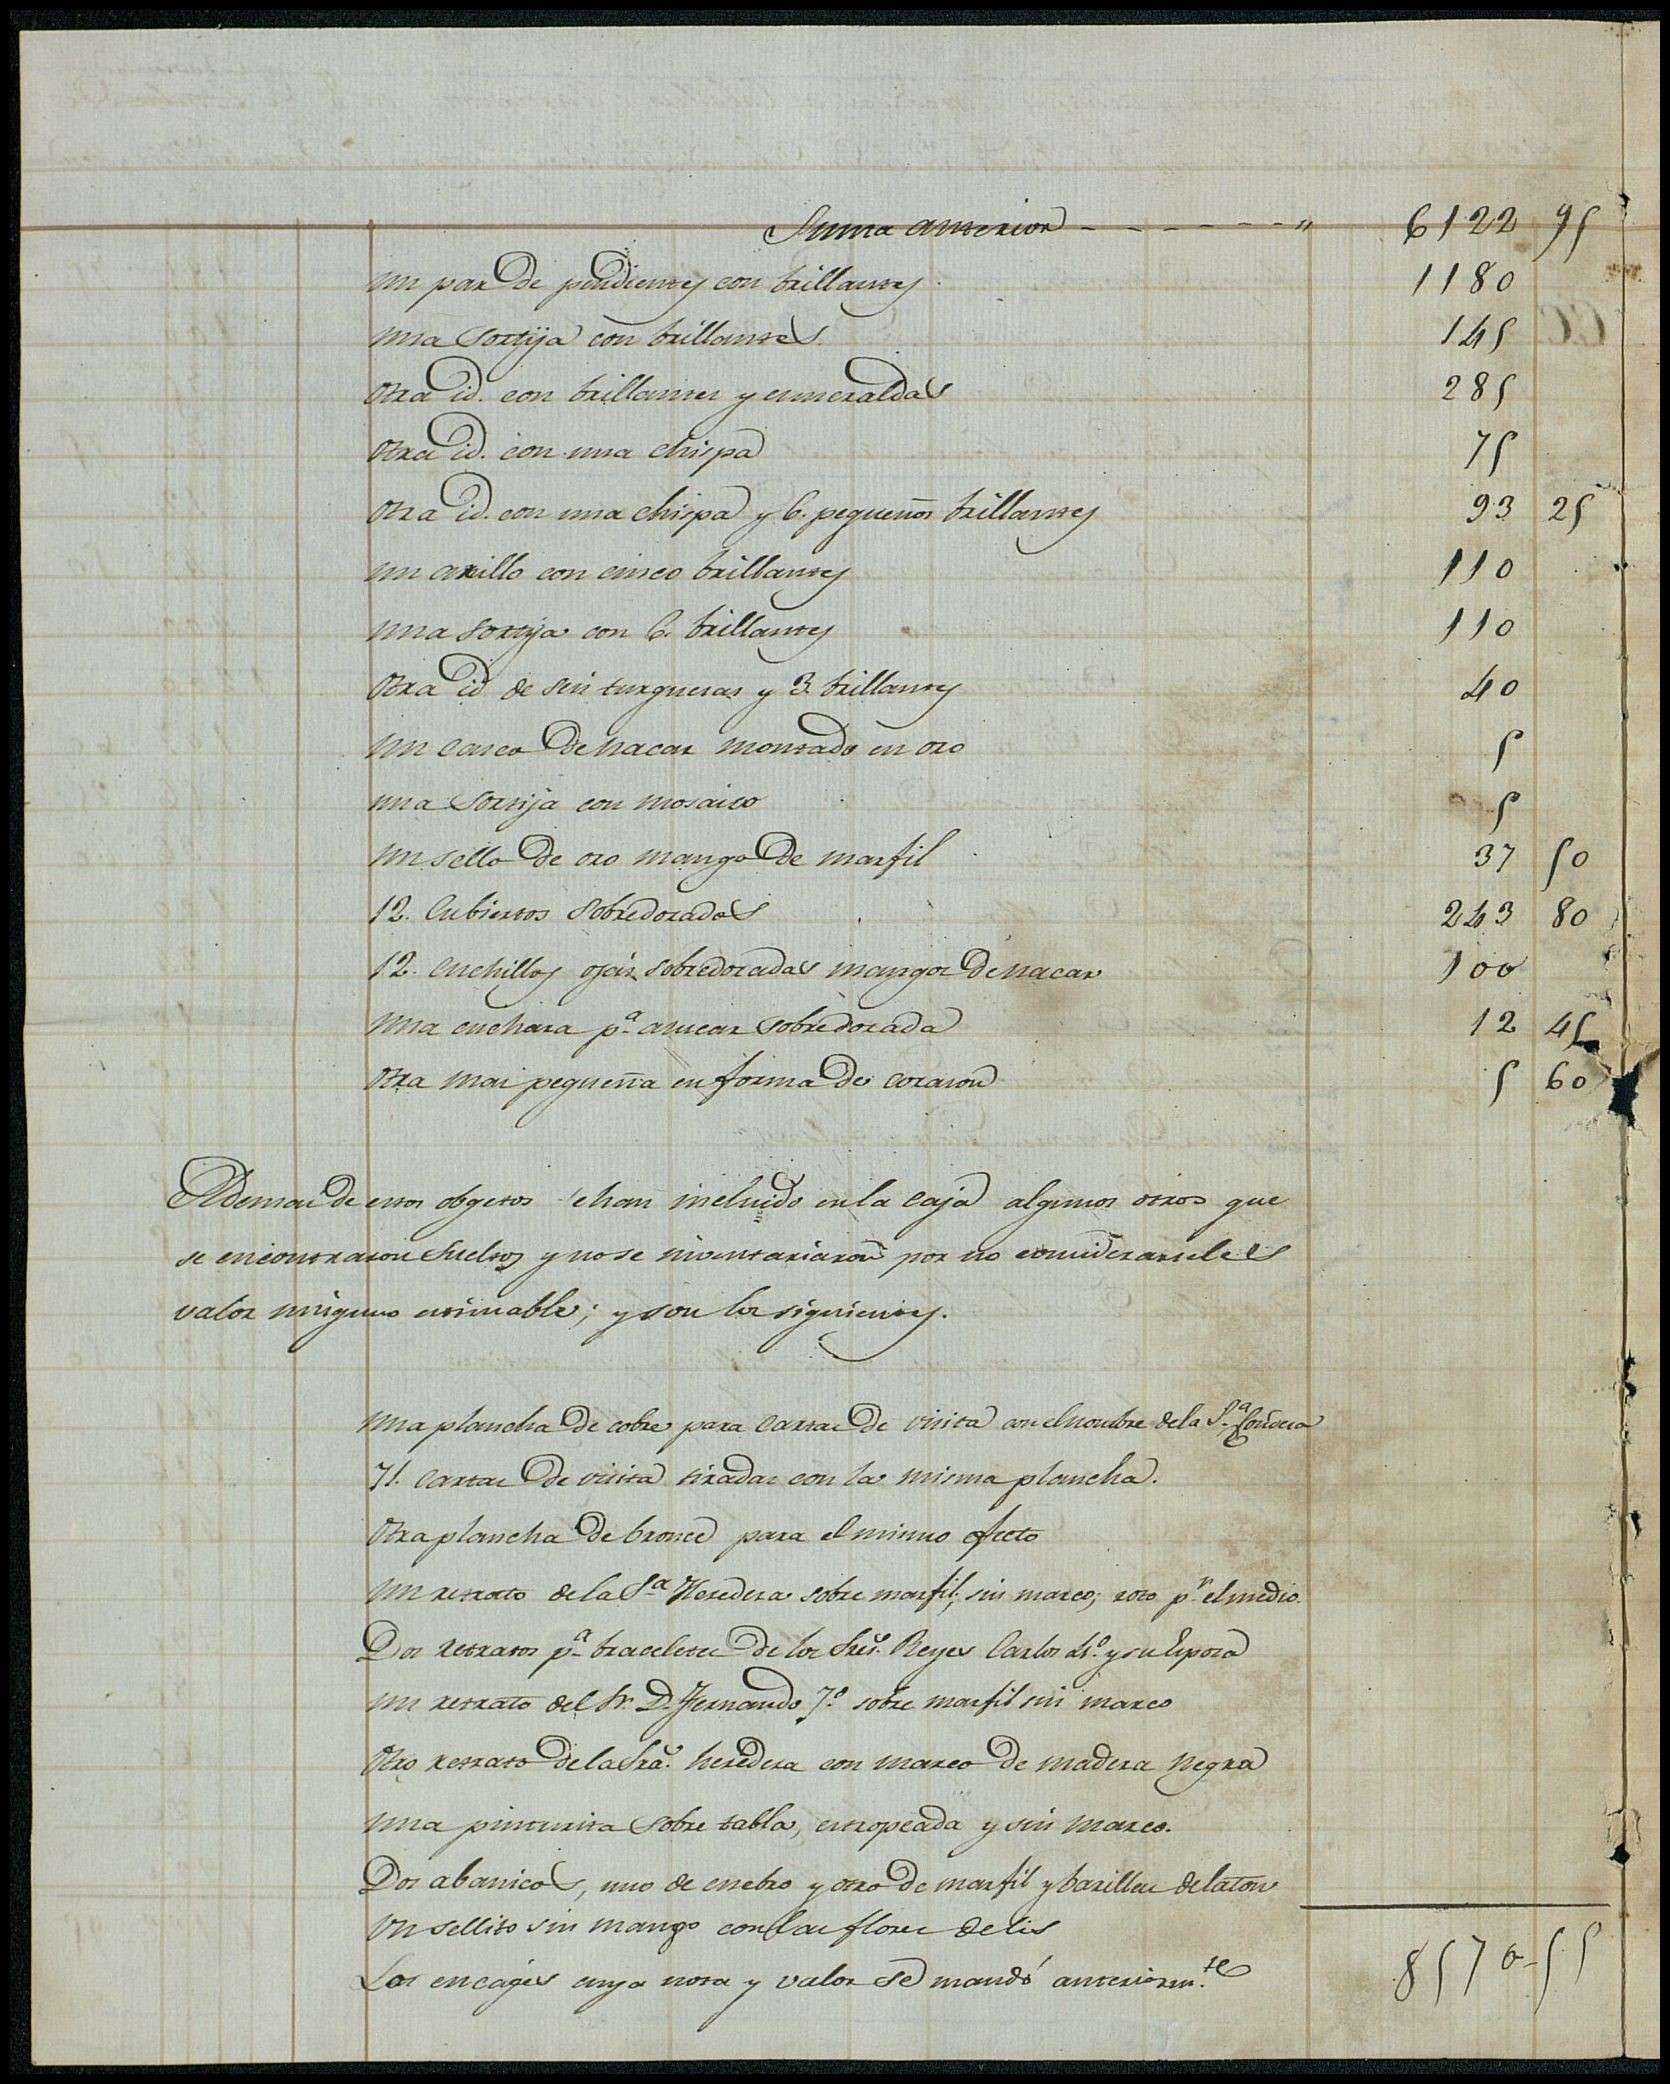 Suma anterior - - - - - - - " 6122 95
Un par de pendientes con brillantes 1180
una Sortija con brillantes 145
Otra id. con brillantes y esmeraldas 285
Otra id. con una chispa 75
Otra id. con una chispa y 6. pequeños brillantes 93 25
un anillo con cinco brillantes 110
una sortija con 6. brillantes 110
Otra id de seis turquesas y 3. brillantes 40
Un casco de nacar montado en oro 5
una Sortija con mosaico 5
Un sello de oro mango de marfil 37 50
12. Cubiertos Sobredorados 243 80
12. cuchillos ojas sobredoradas mangos de nacar 100
Una cuchara pª asucar sobredorada 12 45
Otra mas pequeña en forma de corazon 5 60
Ademas de estos obgetos se han incluido en la caja algunos otros que
se encontraron Sueltos y no se inventariaron por no considerarseles
valor ninguno estimable; y son los siguientes.
Una plancha de cobre para cartas de visita con el nombre de la Sª Condesa
71. cartas de visita tiradas con la misma plancha.
Otra plancha de bronce para el mismo efecto
Un retrato de la Sª Heredera sobre marfil; sin marco; roto pr el medio.
Dos retratos pª braceletes de los Sres. Reyes Carlos 4º. y su Esposa
un retrato del Sr. D. Fernando 7º. sobre marfil sin marco
Otro retrato de la Sra. heredera con marco de madera negra
una pinturita sobre tabla, estropeada y sin marco.
Dos abanicos, uno de enebro y otro de marfil y barillas de laton
Un sellito sin mango con las flores de lis
Los encages cuya nota y valor se mandó anteriormte
8570-55